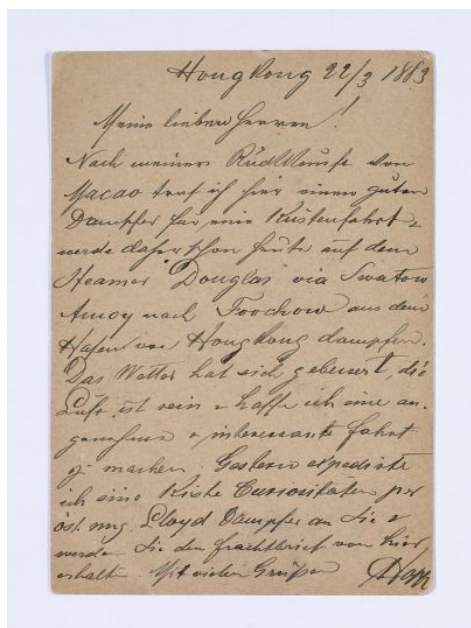 Hongkong 22/3 1883
Meine lieben Herren!
Nach meiner Rückkunft von
Macao traf ich hier einen guten
Dampfer für eine Küstenfahrt &
werde daher schon heute auf dem
Steamer "Douglas" via Swatow
Amoy nach Foochow aus dem
Hafen von Hongkong dampfen.
Das Wetter hat sich gebessert, die
Luft ist rein & hoffe ich eine an-
genehme & interessante Fahrt
z. machen. Gestern expedirte
ich eine Kiste Curiositäten per
öst. ung. Lloyd Dampfer an Sie &
werden Sie den Frachtbrief von hier
erhalten Mit vielen Grüßen